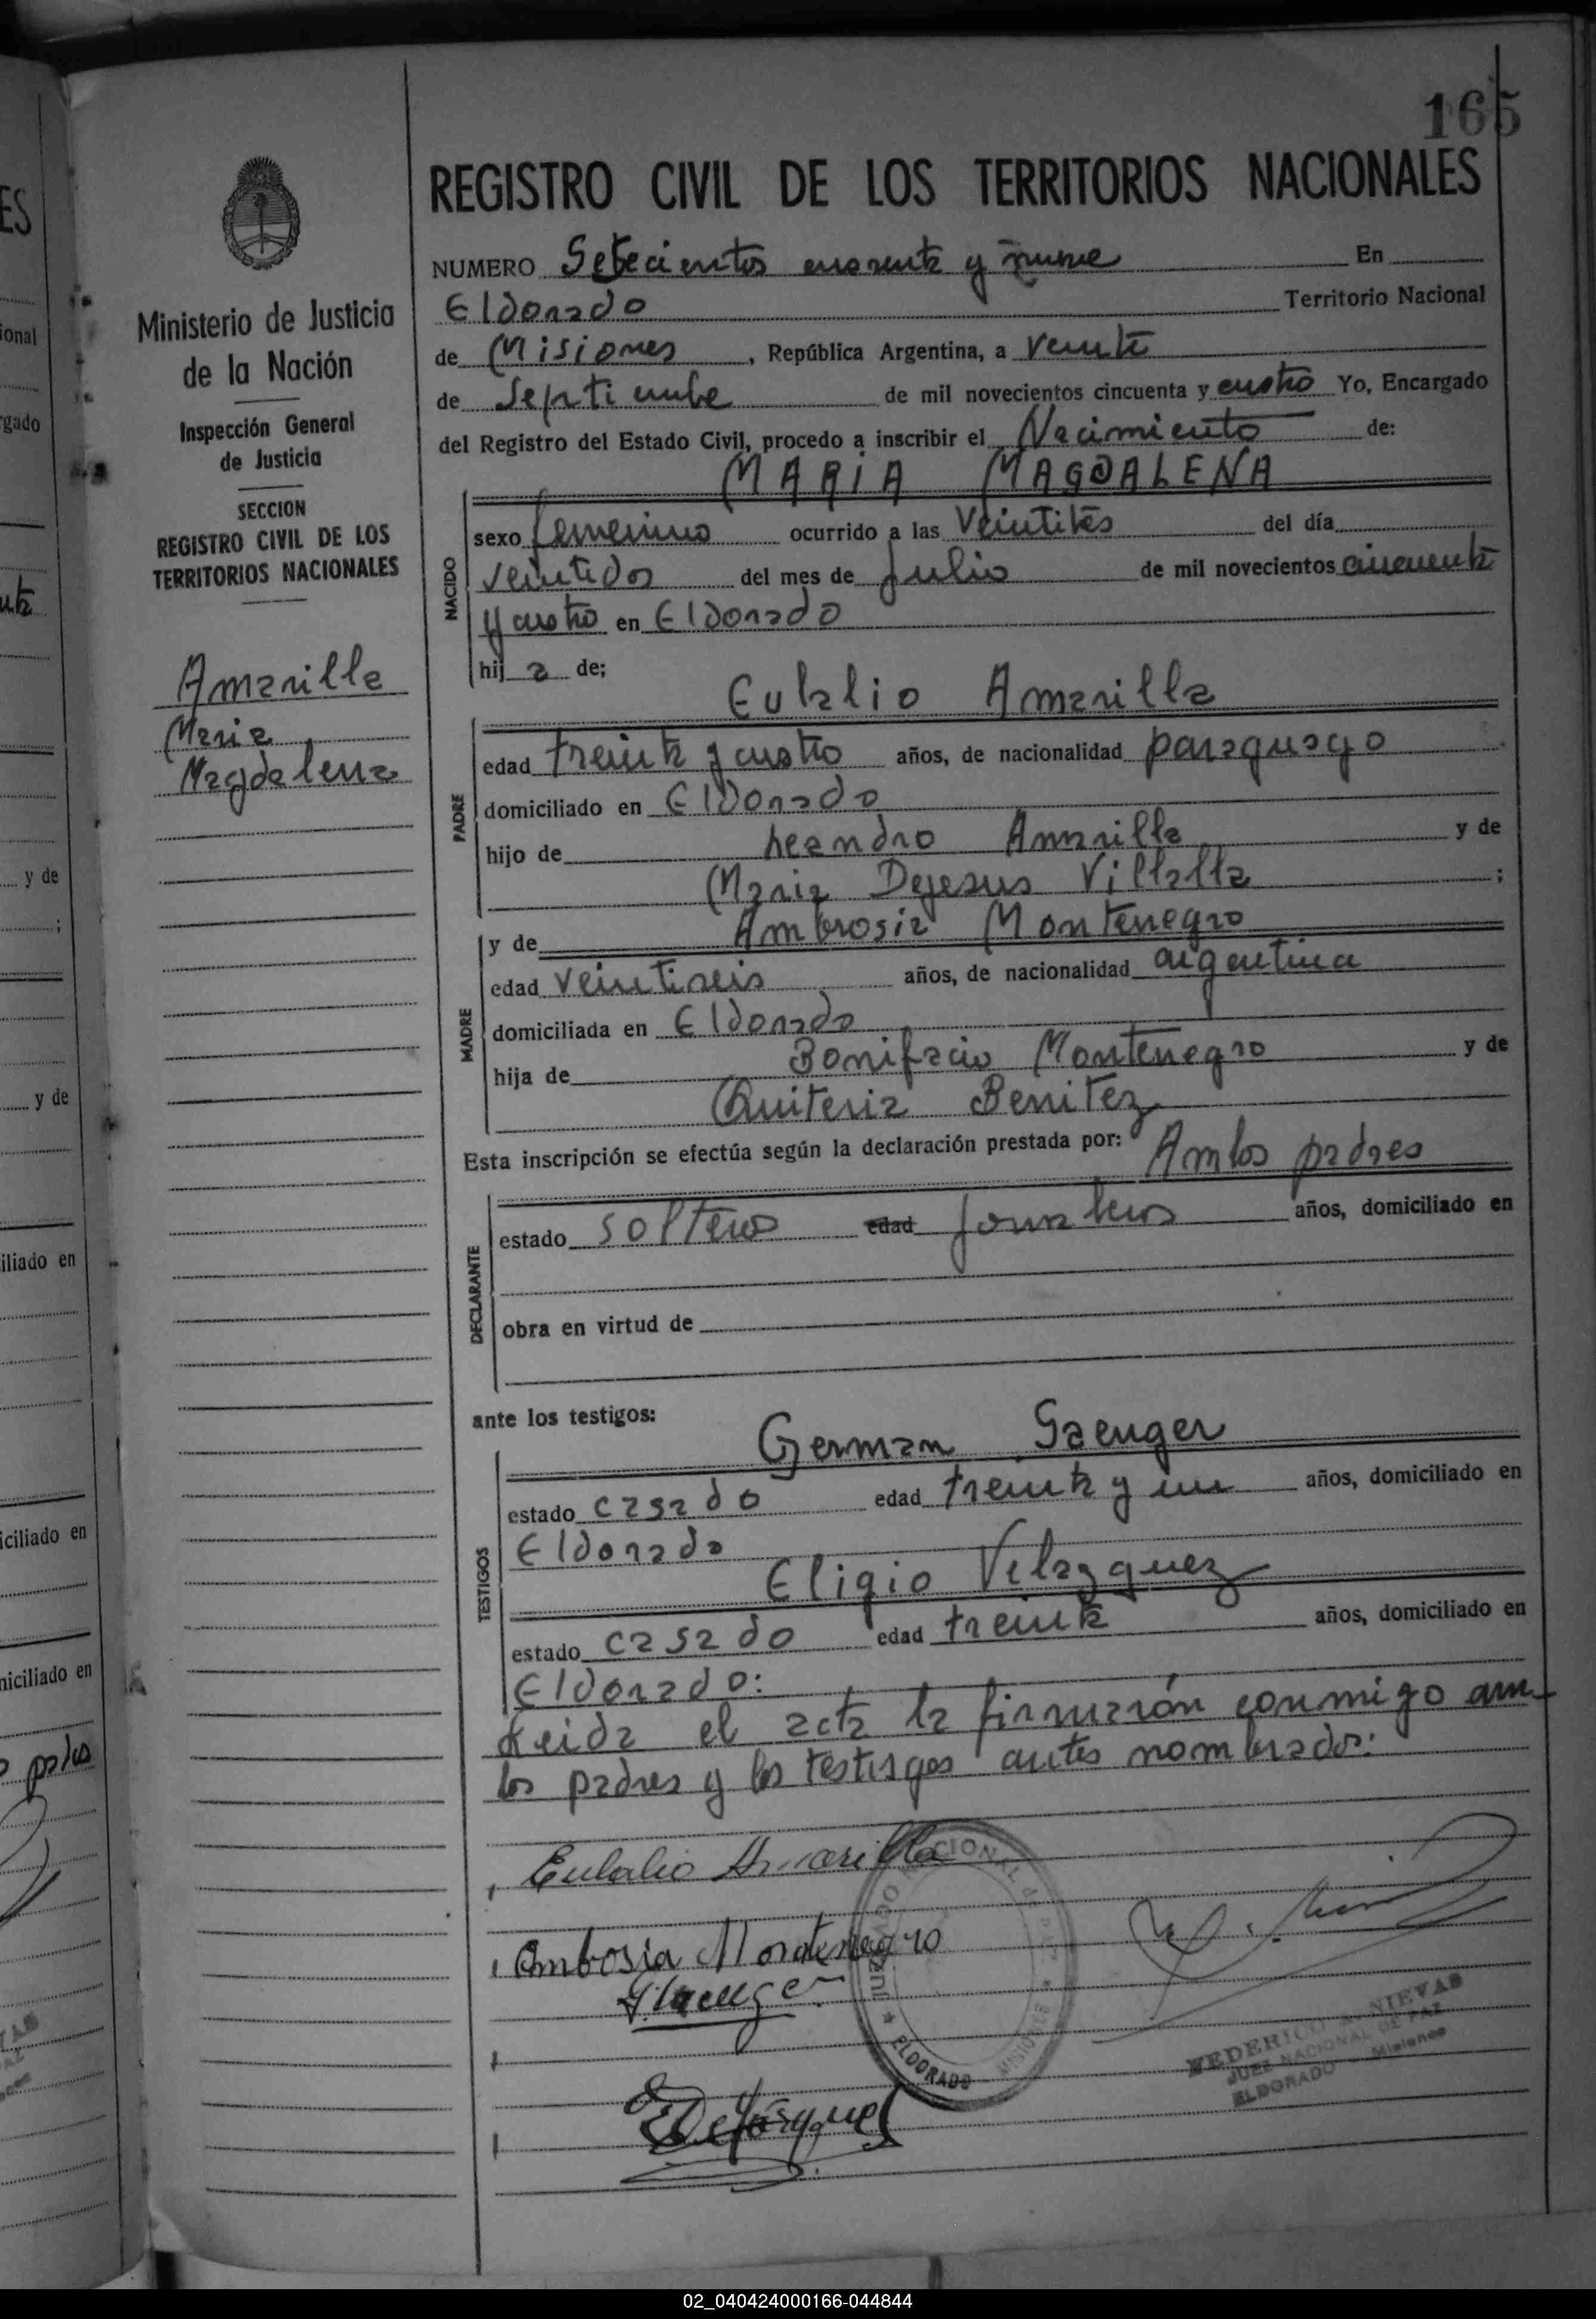 165
REGISTRO CIVIL DE LOS TERRITORIOS NACIONALES
NUMERO Setecientos cuarenta y nueve En
Eldorado Territorio Nacional
de Misiones, República Argentina, a veinte
de Septiembre de mil novecientos cincuenta y cuatro Yo, Encargado
del Registro del Estado Civil, procedo a inscribir el Nacimiento de:
MARIA MAGDALENA
NACIDO
sexo femenino ocurrido a las veintités del día
veintidos del mes de Julio de mil novecientos cincuenta
y cuatro en Eldorado
hija de;
Eulalio Amarilla
PADRE
edad treinta y cuatro años, de nacionalidad paraguayo
domiciliado en Eldorado
hijo de Leandro Amarilla y de
Maria Dejesus Villalla ;
MADRE
y de Ambrosia Montenegro
edad veintiseis años, de nacionalidad argentina
domiciliada en Eldorado
hija de Bonifacio Montenegro y de
Quiteria Benitez
Esta inscripción se efectúa según la declaración prestada por: Ambos padres
DECLARANTE
estado solteros edad jornaleros años, domiciliado en
obra en virtud de
ante los testigos:
TESTIGOS
German Saenger
estado casado edad treinta y un años, domiciliado en
Eldorado
Eligio Velazquez
estado casado edad treinta años, domiciliado en
Eldorado:
Leida el acta la firmarón conmigo am-
bos padres y los testigos antes nombrados:
Eulalio Amarilla
Ambosia Montenegro
ELDORADO
MISIONES
FEDERICO NIEVAS
JUEZ NACIONAL DE PAZ
ELDORADO Misiones
Ministerio de Justicia
de la Nación
Inspección General
de Justicia
SECCION
REGISTRO CIVIL DE LOS
TERRITORIOS NACIONALES
Amarilla
Maria
Magdalena
ES
ional
rgado
y de
;
y de
iliado en
iciliado en
niciliado en
padres
02_040424000166-044844